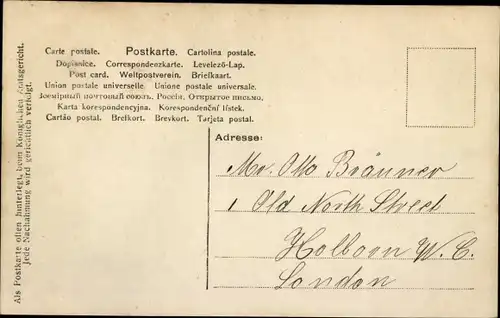 Carte postale. Postkarte. Cartolina postale.
Dopisnice. Correspondenzkarte. Levelező-Lap.
Post card. Weltpostverein. Briefkaart.
Union postale universelle. Unione postale universale.
Всемірный почтовый союзъ. Россія. Открытое письмо.
Karta korespondencyjna. Korespondenční lístek.
Cartão postal. Brefkort. Brevkort. Tarjeta postal.
Als Postkarte offen hinterlegt, beim Königlichen Amtsgericht.
Jede Nachahmung wird gerichtlich verfolgt.
Adresse:
Mr. Otto Bräuner
1 Old North Street
Holborn W. C.
London